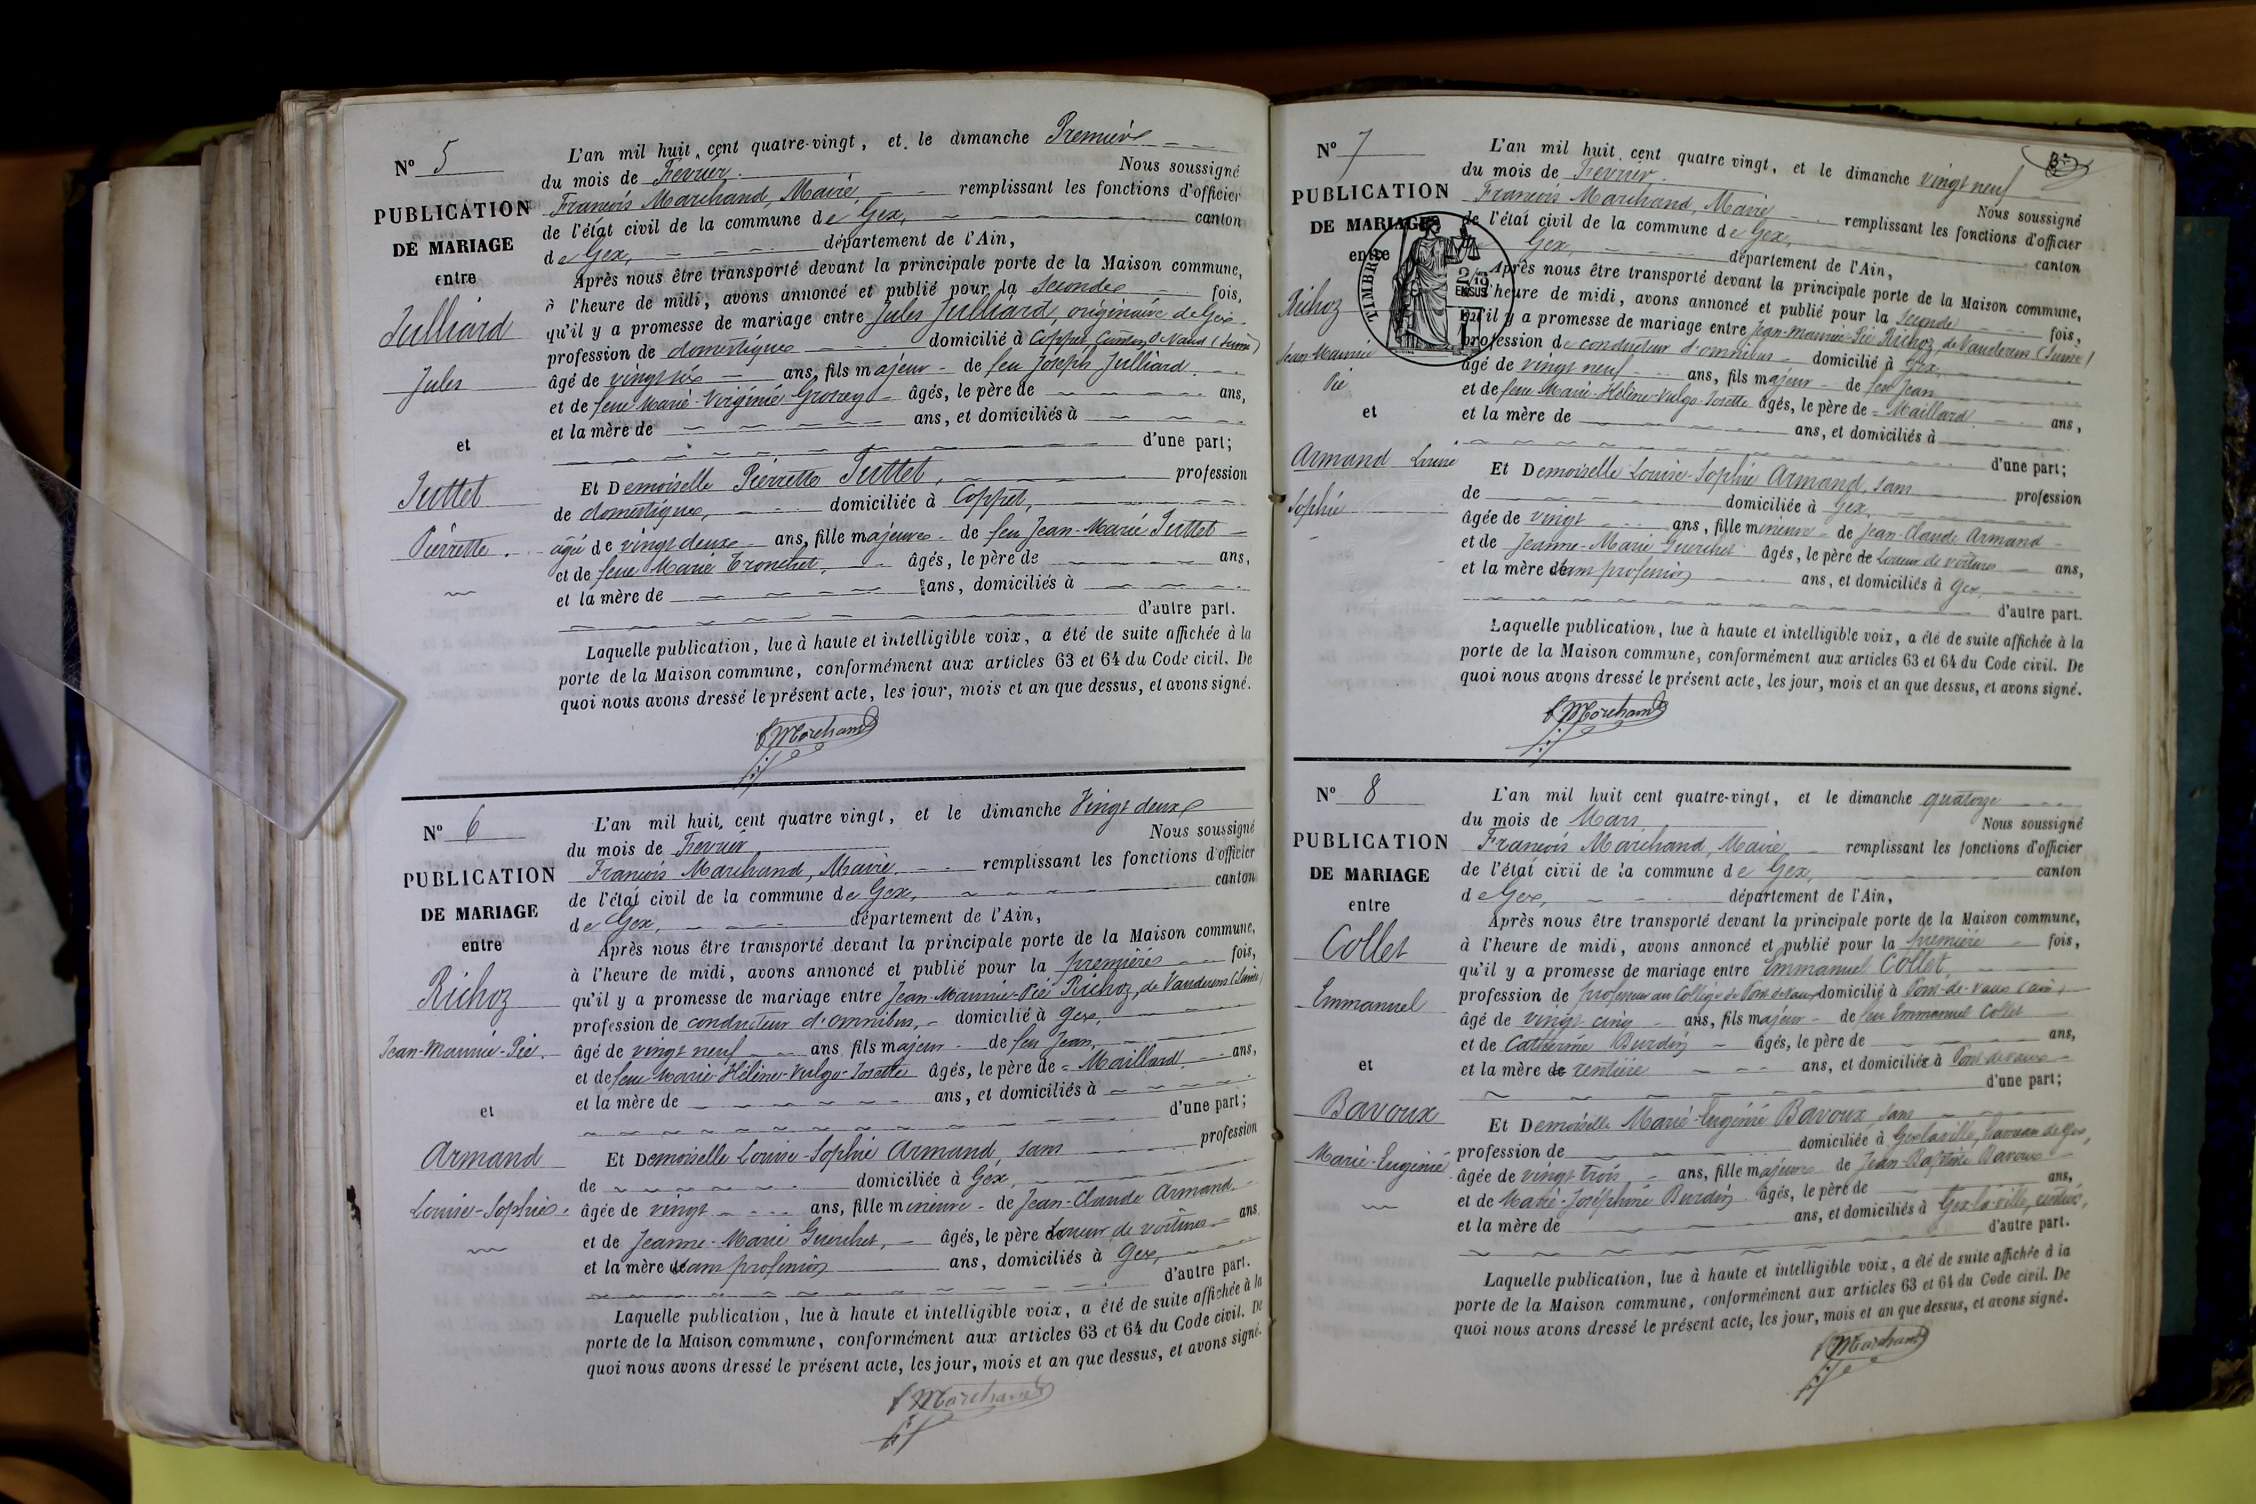 N° 5
PUBLICATION
DE MARIAGE
entre
Julliard
Jules
et
Juttet
Pierrette
L'an mil huit cent quatre-vingt, et le dimanche Premier
du mois de Fevrier. Nous soussigné
François Marchand, Maire, remplissant les fonctions d'officier
de l'état civil de la commune de Gex, canton
de Gex, département de l'Ain,
Après nous être transporté devant la principale porte de la Maison commune,
à l'heure de midi, avons annoncé et publié pour la seconde fois,
qu'il y a promesse de mariage entre Jules Julliard, originaire de Gex
profession de domestique domicilié à Coppet Canton de Vaud (Suisse)
âgé de vingt six ans, fils majeur de feu Joseph Julliard
et de feue Marie-Virginie âgés, le père de ans,
et la mère de ans, et domiciliés à
d'une part;
Et Demoiselle Pierrette Juttet, profession
de domestique, domiciliée à Coppet,
âgée de vingt deux ans, fille majeure de feu Jean-Marie Juttet
et de feue Marie Tronchet, âgés, le père de ans,
et la mère de ans, domiciliés à
d'autre part.
Laquelle publication, lue à haute et intelligible voix, a été de suite affichée à la
porte de la Maison commune, conformément aux articles 63 et 64 du Code civil. De
quoi nous avons dressé le présent acte, les jour, mois et an que dessus, et avons signé.
f Marchand
N° 6
PUBLICATION
DE MARIAGE
entre
Richoz
Jean-Maurice-Pie
et
Armand
Louise-Sophie
L'an mil huit cent quatre vingt, et le dimanche Vingt deux
du mois de Fevrier Nous soussigné
François Marchand, Maire, remplissant les fonctions d'officier
de l'état civil de la commune de Gex, canton
de Gex, département de l'Ain,
Après nous être transporté devant la principale porte de la Maison commune,
à l'heure de midi, avons annoncé et publié pour la première fois,
qu'il y a promesse de mariage entre Jean-Maurice-Pie Richoz, de Vauderens (Suisse)
profession de conducteur d'omnibus, domicilié à Gex,
âgé de vingt neuf ans fils majeur de feu Jean,
et de feue Marie-Hélène-Vulgo-Josette âgés, le père de = Maillard ans,
et la mère de ans, et domiciliés à
d'une part;
Et Demoiselle Louise-Sophie Armand, sans profession
de domiciliée à Gex,
âgée de vingt ans, fille mineure de Jean-Claude Armand
et de Jeanne-Marie Guerchet, âgés, le père Loueur de voitures ans
et la mère sans profession ans, domiciliés à Gex,
d'autre part.
Laquelle publication, lue à haute et intelligible voix, a été de suite affichée à la
porte de la Maison commune, conformément aux articles 63 et 64 du Code civil. De
quoi nous avons dressé le présent acte, les jour, mois et an que dessus, et avons signé.
f Marchand
N° 7
PUBLICATION
DE MARIAGE
entre
Richoz
Jean Maurice
Pie
et
Armand Louise
Sophie
TIMBRE
2/10
EN SUS
L'an mil huit cent quatre vingt, et le dimanche vingt neuf
du mois de Fevrier Nous soussigné
François Marchand, Maire remplissant les fonctions d'officier
de l'état civil de la commune de Gex, canton
Gex, département de l'Ain,
Après nous être transporté devant la principale porte de la Maison commune,
l'heure de midi, avons annoncé et publié pour la seconde fois,
qu'il y a promesse de mariage entre Jean-Maurice-Pie Richoz, de Vauderens (Suisse)
profession de conducteur d'omnibus domicilié à Gex,
âgé de vingt neuf ans, fils majeur de feu Jean
et de feue Marie-Hélène-Vulgo-Josette âgés, le père de = Maillard ans,
et la mère de ans, et domiciliés à
d'une part;
Et Demoiselle Louise-Sophie Armand, sans profession
de domiciliée à Gex,
âgée de vingt ans, fille mineure de Jean-Claude Armand
et de Jeanne-Marie Guerchet âgés, le père de Loueur de voitures ans,
et la mère sans profession ans, et domiciliés à Gex,
d'autre part.
Laquelle publication, lue à haute et intelligible voix, a été de suite affichée à la
porte de la Maison commune, conformément aux articles 63 et 64 du Code civil. De
quoi nous avons dressé le présent acte, les jour, mois et an que dessus, et avons signé.
f Marchand
N° 8
PUBLICATION
DE MARIAGE
entre
Collet
Emmanuel
et
Bavoux
Marie-Eugénie
L'an mil huit cent quatre-vingt, et le dimanche quatorze
du mois de Mars Nous soussigné
François Marchand, Maire remplissant les fonctions d'officier
de l'état civil de la commune de Gex, canton
de Gex, département de l'Ain,
Après nous être transporté devant la principale porte de la Maison commune,
à l'heure de midi, avons annoncé et publié pour la première fois,
qu'il y a promesse de mariage entre Emmanuel Collet,
profession de professeur au Collège de Pont de Vaux domicilié à Pont-de-Vaux (Ain)
âgé de vingt cinq ans, fils majeur de feu Emmanuel Collet
et de Catherine Burdin âgés, le père de ans,
et la mère de rentière ans, et domiciliés à Pont de vaux
d'une part;
Et Demoiselle Marie-Eugénie Bavoux, sans
profession de domiciliée à Gex la ville, hameau de Gex,
âgée de vingt trois ans, fille majeure de Jean-Baptiste Bavoux
et de Marie-Joséphine Burdin âgés, le père de ans,
et la mère de ans, et domiciliés à Gex-la-ville,
d'autre part.
Laquelle publication, lue à haute et intelligible voix, a été de suite affichée à la
porte de la Maison commune, conformément aux articles 63 et 64 du Code civil. De
quoi nous avons dressé le présent acte, les jour, mois et an que dessus, et avons signé.
f Marchand